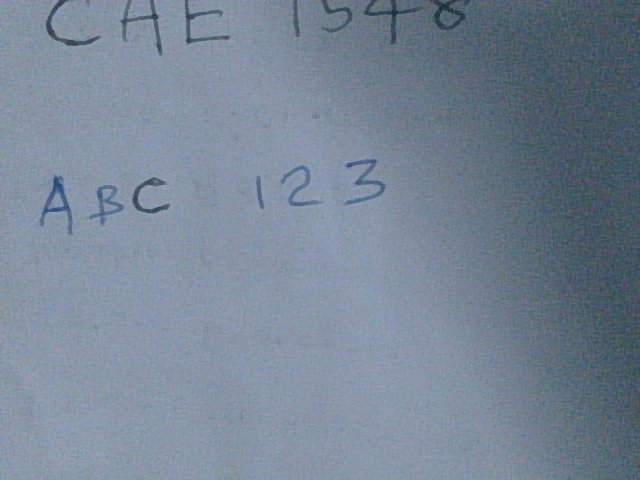 CAE 1548
ABC 123